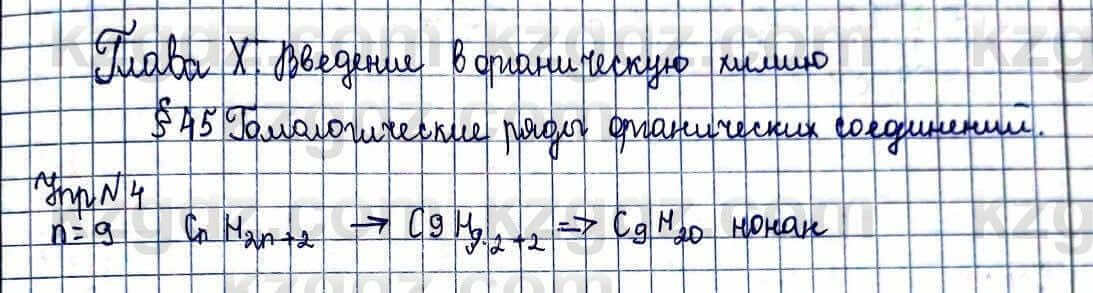 Глава X. Введение в органическую химию
§45 Гомологические ряды органических соединений.
Упр N 4
n=9 CnH2n+2 → C9H9·2+2 => C9H20 нонан